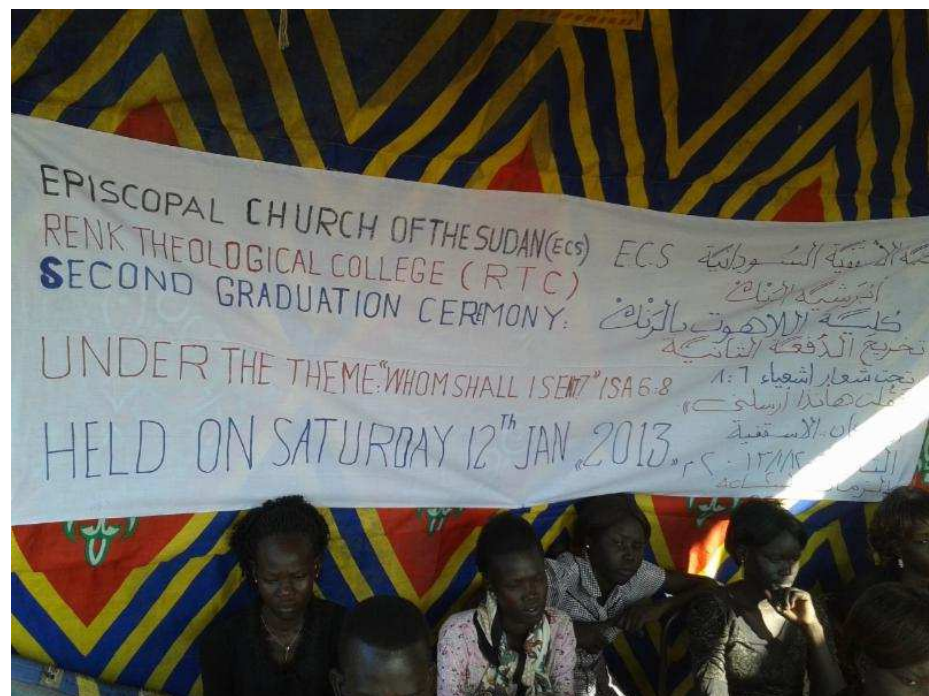 EPISCOPAL CHURCH OF THE SUDAN (ECS)
RENK THEOLOGICAL COLLEGE (RTC)
SECOND GRADUATION CEREMONY:
UNDER THE THEME: "WHOM SHALL I SENT?" ISA 6:8
HELD ON SATURDAY 12th JAN, 2013.
الأسقفية السودانية E.C.S
الرنك
كلية اللاهوت بالرنك
تخريج الدفعة الثانية
تحت شعار اشعياء ٦:٨
هانذا ارسلني»
الاسقفية